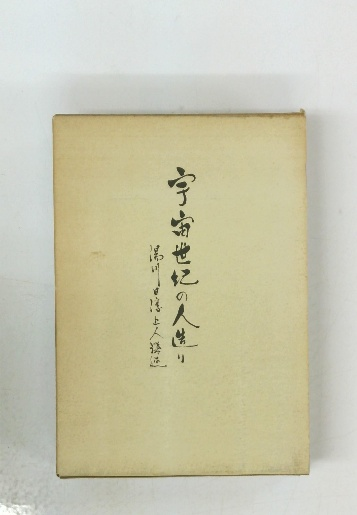 宇宙世紀の人造り
湯川日淳上人講述